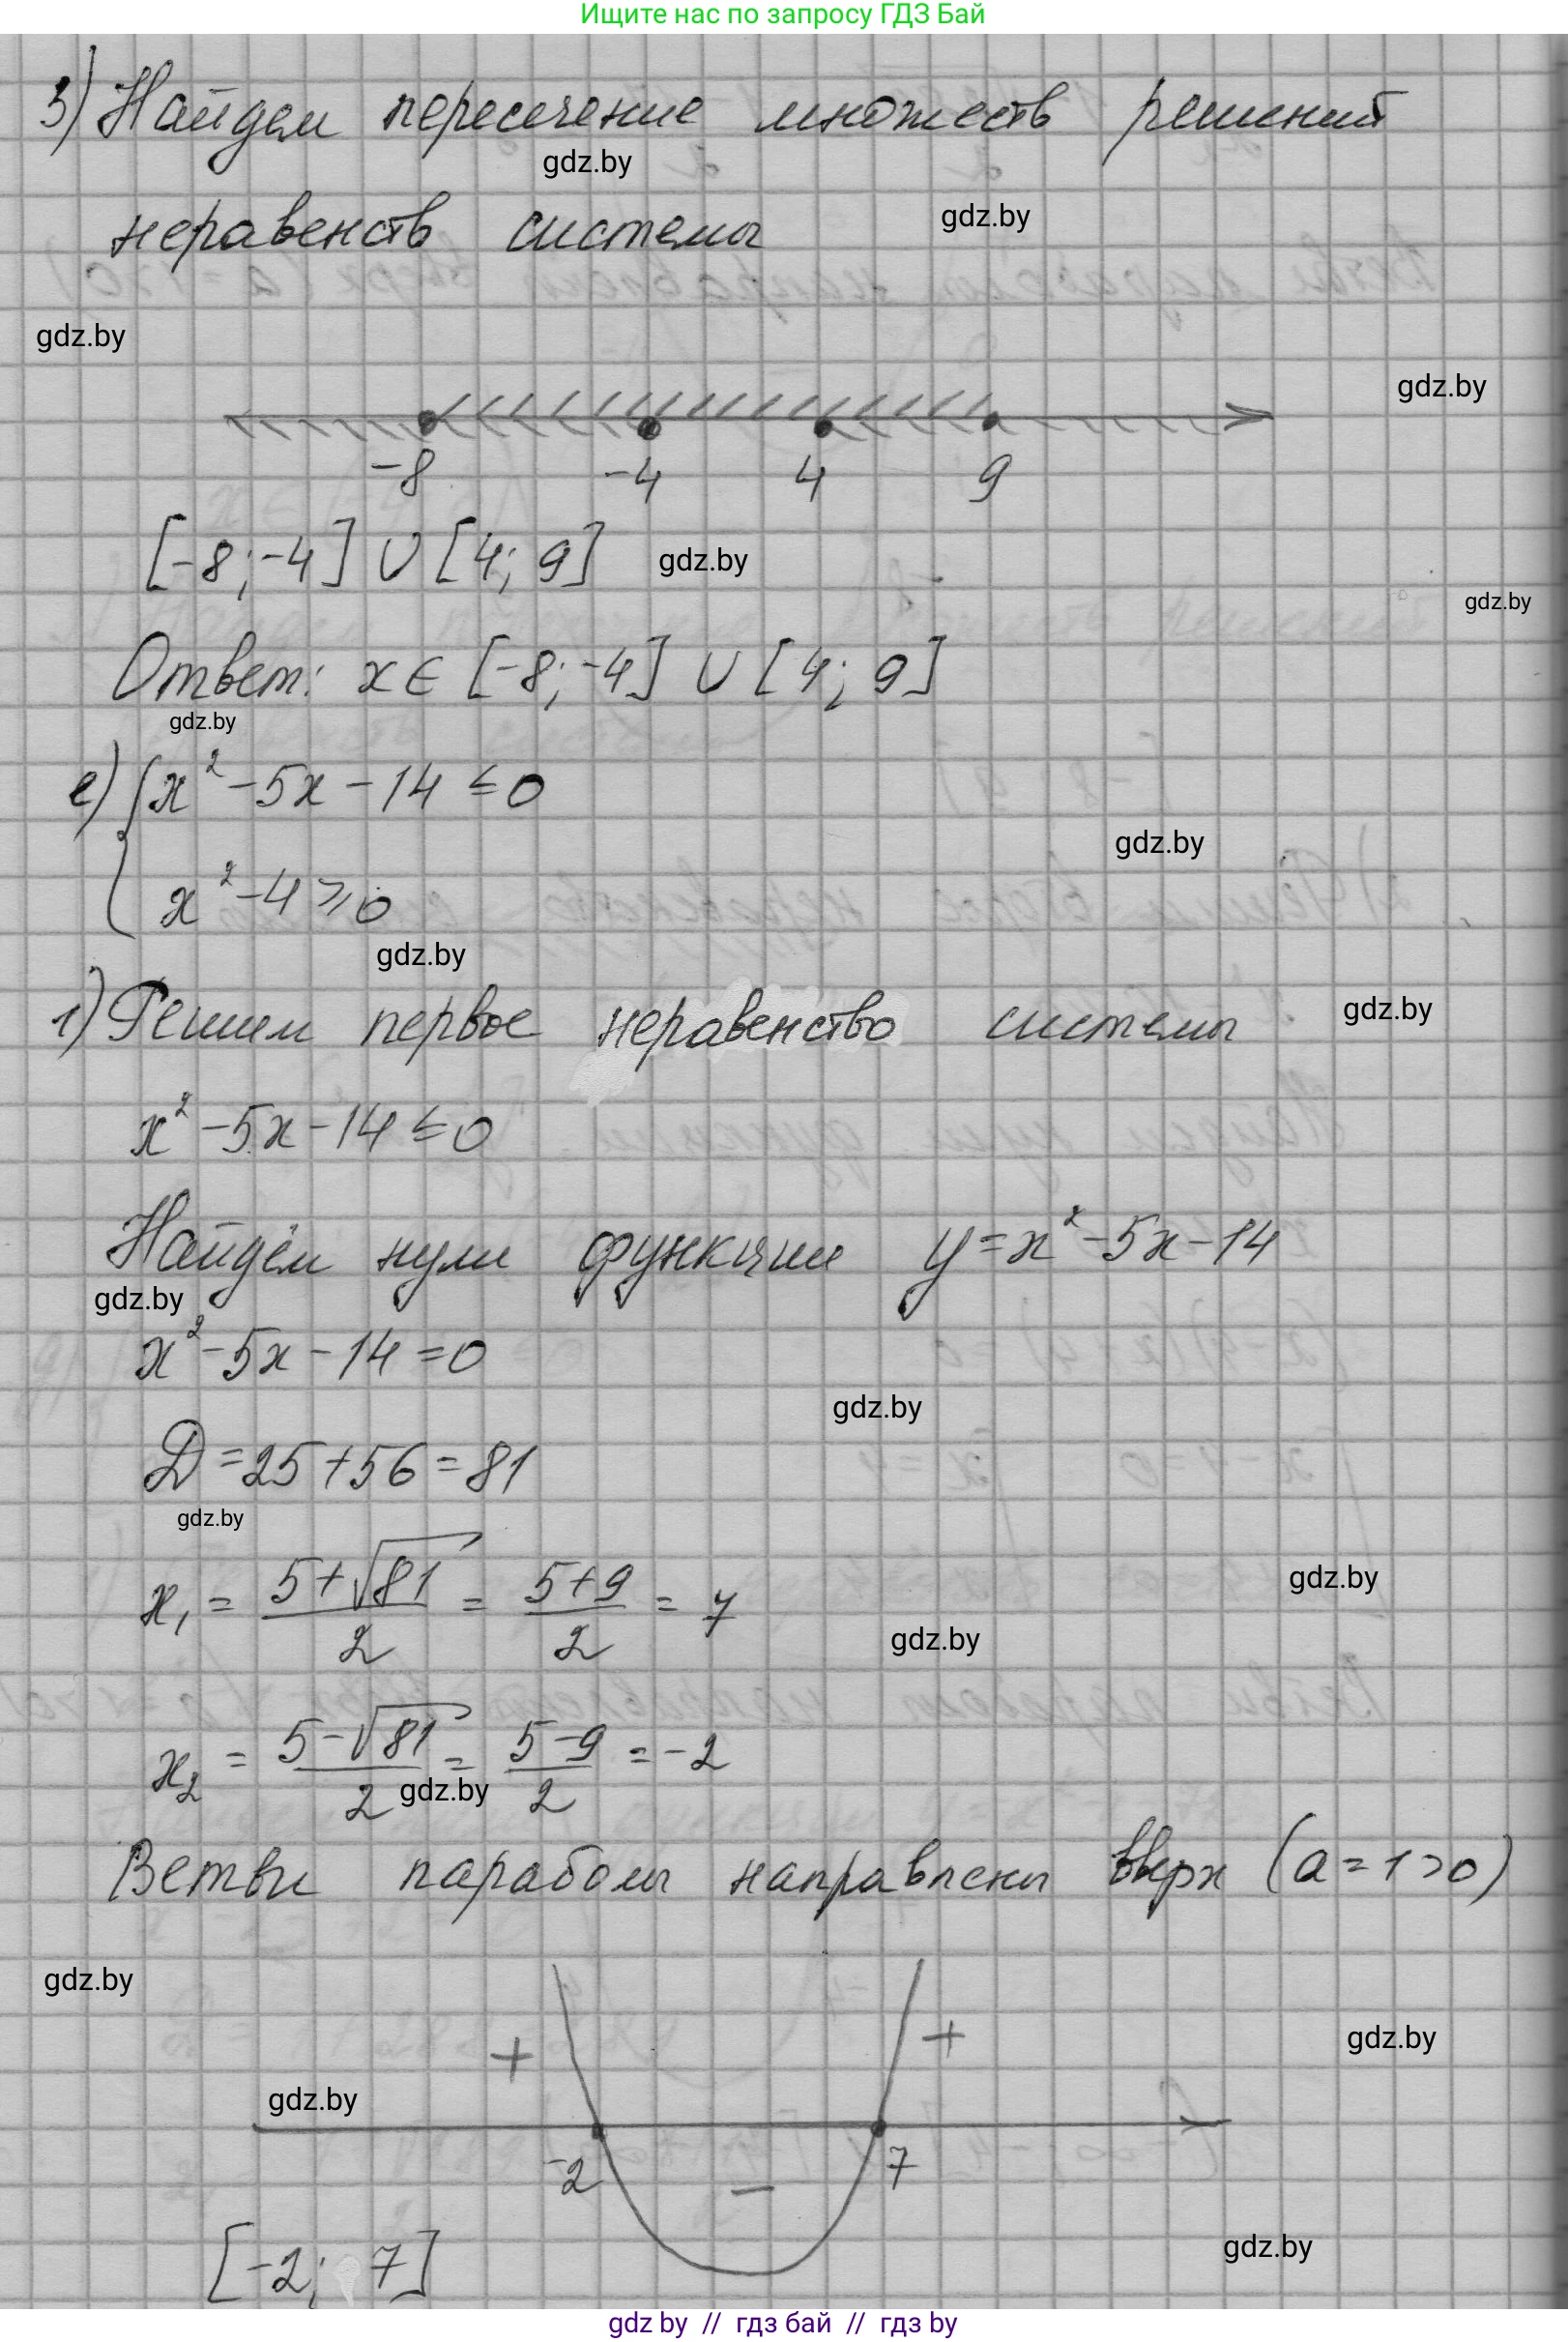 Ищите нас по запросу ГДЗ Бай
3) Найдем пересечение множеств решений
gdz.by
неравенств системы
gdz.by
gdz.by
gdz.by
-8 -4 4 9
[-8; -4] ∪ [4; 9]
gdz.by
gdz.by
Ответ: x ∈ [-8; -4] ∪ [4; 9]
gdz.by
е) { x² - 5x - 14 ≤ 0
gdz.by
x² - 4 ≥ 0
gdz.by
1) Решим первое неравенство системы
gdz.by
x² - 5x - 14 ≤ 0
Найдём нули функции y = x² - 5x - 14
gdz.by
x² - 5x - 14 = 0
gdz.by
D = 25 + 56 = 81
gdz.by
x₁ = (5 + √81)/2 = (5 + 9)/2 = 7
gdz.by
gdz.by
x₂ = (5 - √81)/2 = (5 - 9)/2 = -2
gdz.by
Ветви параболы направлены вверх (a = 1 > 0)
gdz.by
+ +
gdz.by
gdz.by
-2 7
-
gdz.by
[-2; 7]
gdz by // гдз бай // гдз by